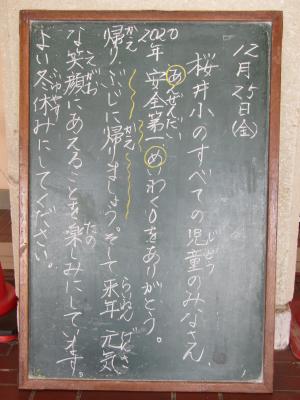 12月25日(金)
桜井小のすべての児童のみなさん、
2020年 安全第い めいわく0をありがとう。
帰り、ぶじに帰りましょう。そして来年、元気
な笑顔にあえることを楽しみにしています。
よい冬休みにしてください。